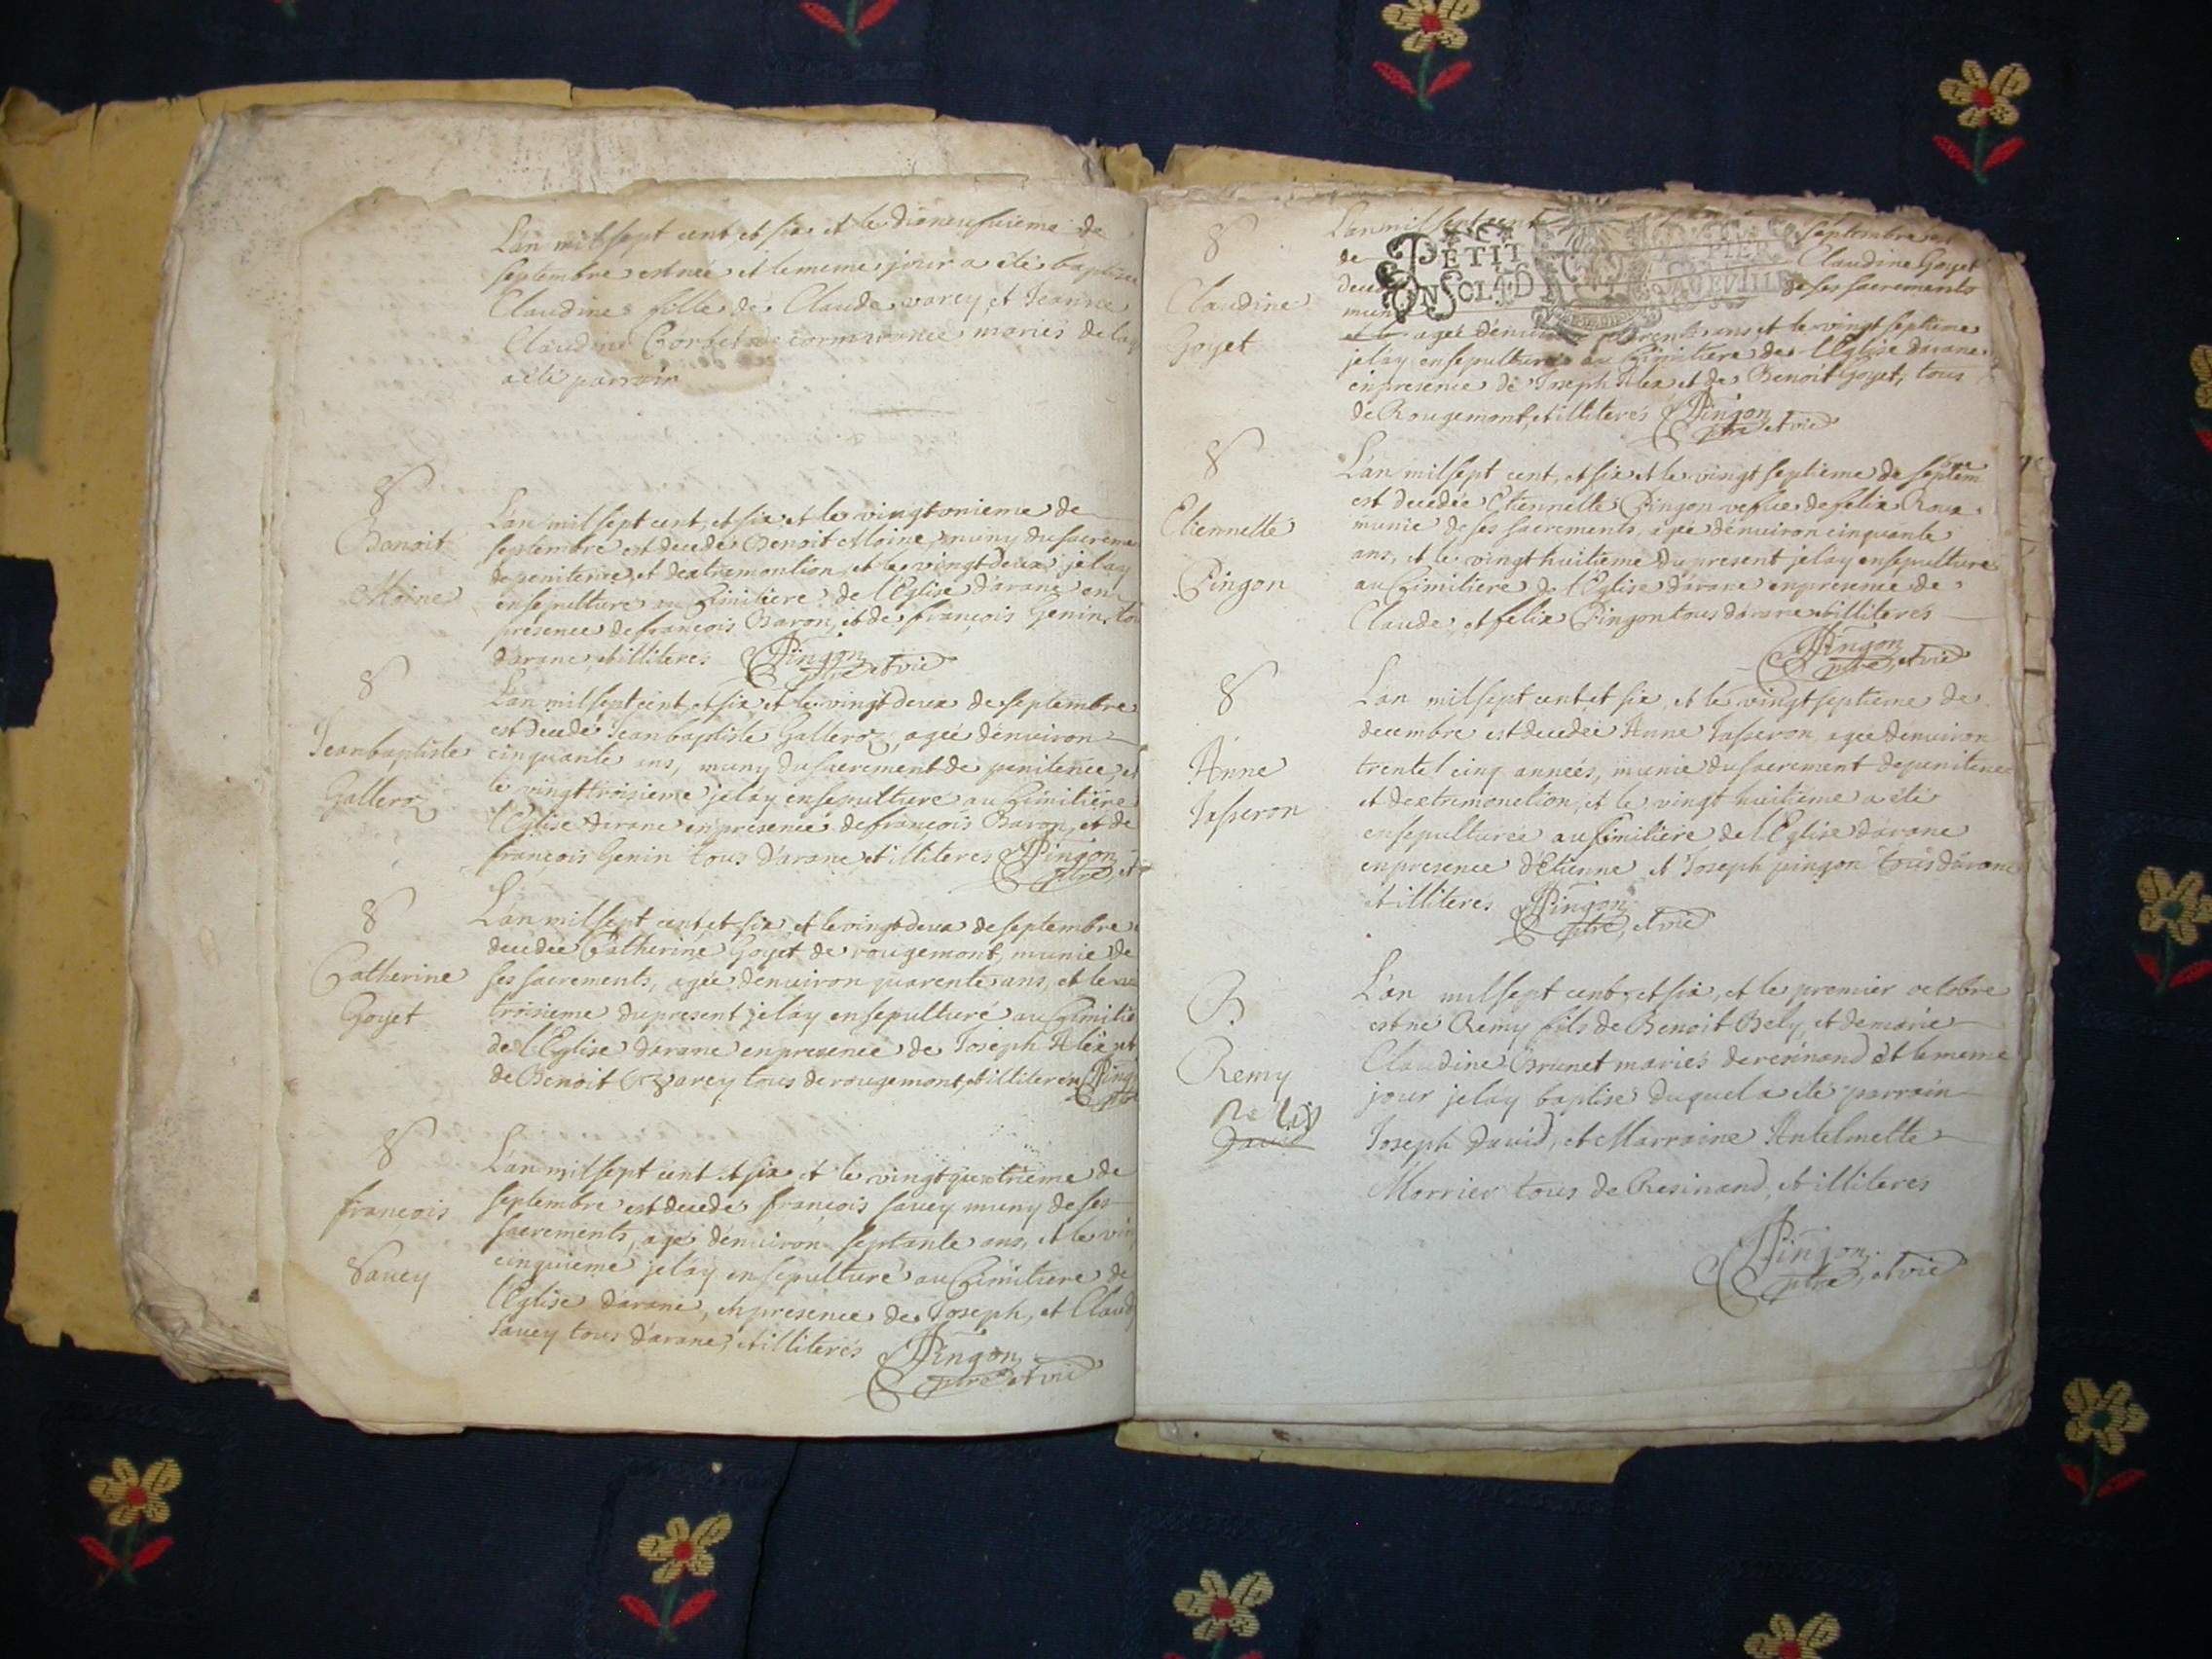 L'an mil sept cent et six et le dixneufvieme de
septembre est née et le meme jour a été baptisée
Claudine fille de Claude varey et Jeanne
Claudine Corbet de cormaranche mariés de laq
a été parrain
8
Benoit
Moine
L'an mil sept cent, et six et le vingtonieme de
septembre est decedé Benoit Moine, muny du sacreme
de penitence, et dextremontion, et le vingtdeux je lay
ensepulturé au Cimitiere de l'Eglise d'arane en
presence de françois Baron, et de françois Genin, tou
d'arane, et illiteres Pingon
ptre et vic
8
Jeanbaptiste
Galleroz
L'an mil sept cent, et six et le vingtdeux de septembre
est decedé Jeanbaptiste Galleroz, agée d'enuiron
cinquante ans, muny du sacrement de penitence, et
le vingttroisieme je lay ensepulturé au Cimitiére
l'Eglise d'arane en presence de françois Baron, et de
françois Genin tous d'arane et illiteres Pingon
ptre, et
8
Catherine
Goyet
L'an mil sept cent et six, et le vingtdeux de septembre
decedée Catherine Goyet de rougemont, munie de
ses sacrements, agée d'enuiron quarente ans, et le
troisieme du present je lay ensepulturé au Cimitie
de l'Eglise d'arane en presence de Joseph Alex et
de Benoit varey tous de rougemont, et illiteres Ping
ptre
8
françois
Savey
L'an mil sept cent et six, et le vingtquatrieme de
septembre est decedé françois savey muny de ses
sacrements, agé d'enuiron septante ans, et le vin
cinquieme je lay ensepulturé au Cimitiere de
l'Eglise d'arane, en presence de Joseph, et Claud
savey tous d'arane, et illiterés Pingon
ptre et vic
8
Claudine
Goyet
L'an mil sept cent septembre est
de Claudine Goyet
dece de ses sacrements
mun
PETIT
ONSOL 4D
et le agée d'enuiron quarente ans et le vingt septieme
je lay ensepulturé au Cimitiere de l'Eglise d'arane
en presence de Joseph Alex et de Benoit Goyet, tous
de Rougemont, et illiterés Pingon
ptre et vic
8
Etiennette
Pingon
L'an mil sept cent, et six et le vingt septieme de septembre
est decedée Etiennette Pingon vefue de felix Roux
munie de ses sacrements, agée d'enuiron cinquante
ans, et le vingthuitieme du present je lay ensepulturé
au Cimitiere de l'Eglise d'arane en presence de
Claude, et felix Pingon tous d'arane et illiterés
Pingon
ptre, et vic
8
Anne
Jasseron
L'an mil sept cent et six, et le vingtseptieme de
decembre est decedée Anne Jasseron agée d'enuiron
trente cinq années, munie du sacrement de penitence
et dextremonction, et le vingt huitieme a été
ensepulturée au Cimitiere de l'Eglise d'arane
en presence d'Etienne et Joseph pingon tous d'arane
et illiterés Pingon
ptre, et vic
B
Remy
Bely
David
L'an mil sept cent, et six, et le premier octobre
est né Remy fils de Benoit Bely, et de marie
Claudine Brunet mariés de resinand et le meme
jour je lay baptisé duquel a été parrain
Joseph David, et Marraine Antelmette
Morrier tous de Resinand, et illiteres
Pingon
ptre, et vic